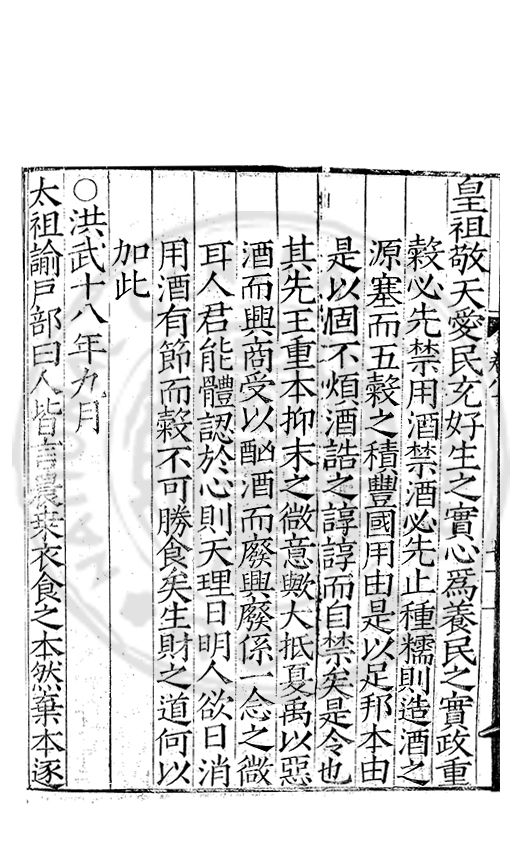 皇祖敬天愛民充好生之實心為養民之實政重
穀必先禁用酒禁酒必先止種糯則造酒之
源塞而五穀之積豐國用由是以足邦本由
是以固不煩酒誥之諄諄而自禁矣是令也
其先王重本抑末之微意歟大抵夏禹以惡
酒而興商受以酗酒而廢興廢係一念之微
耳人君能體認於心則天理日明人欲日消
用酒有節而穀不可勝食矣生財之道何以
加此
○洪武十八年九月
太祖諭戶部曰人皆言農桒衣食之本然棄本逐